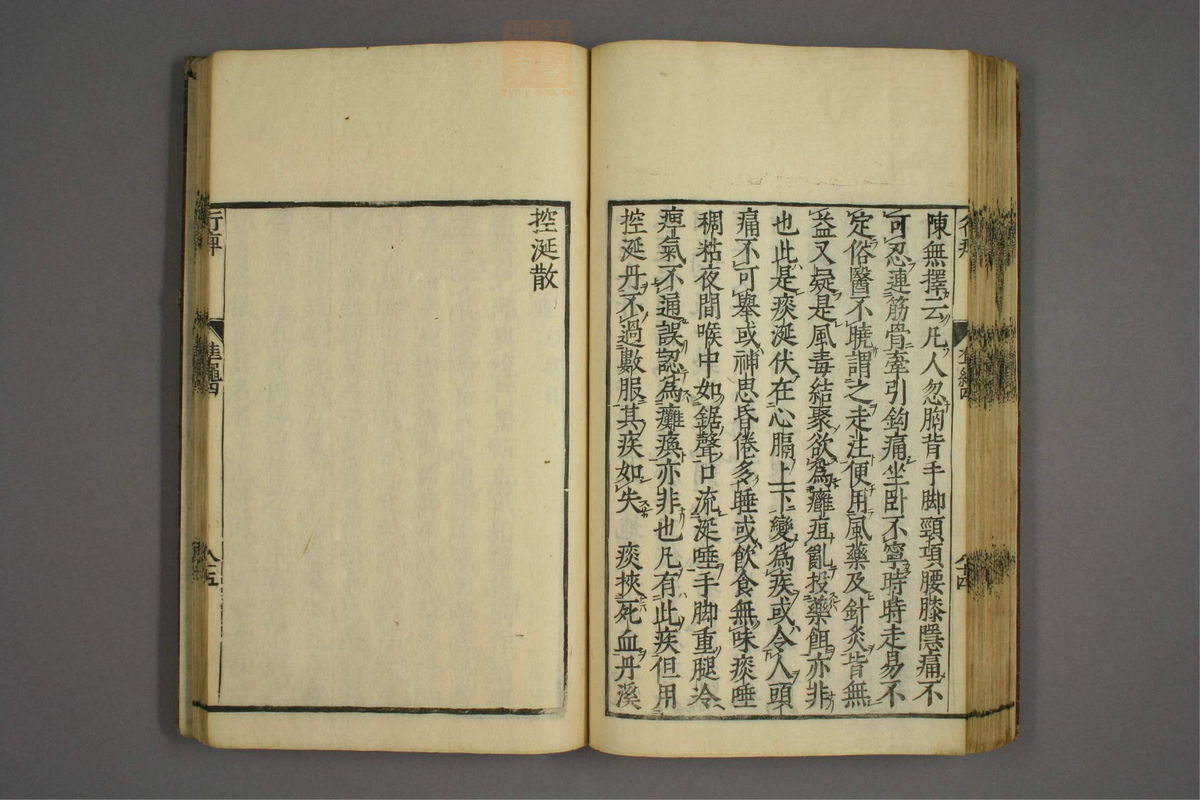 陳無擇云凡人忽胸背手脚頸項腰膝隱痛不
可忍連筋骨牽引鈎痛坐卧不寧時時走易不
定俗醫不曉謂之走注便用風藥及針灸皆無
益又疑是風毒結聚欲爲癰疽亂投藥餌亦非
也此是痰涎伏在心膈上下變爲疾或令人頭
痛不可舉或神思昏倦多睡或飲食無味痰唾
稠粘夜間喉中如鋸聲口流涎唾手脚重腿冷
痺氣不通誤認爲癱瘓亦非也凡有此疾但用
控涎丹不過數服其疾如失　痰挾死血丹溪
控涎散
準繩四